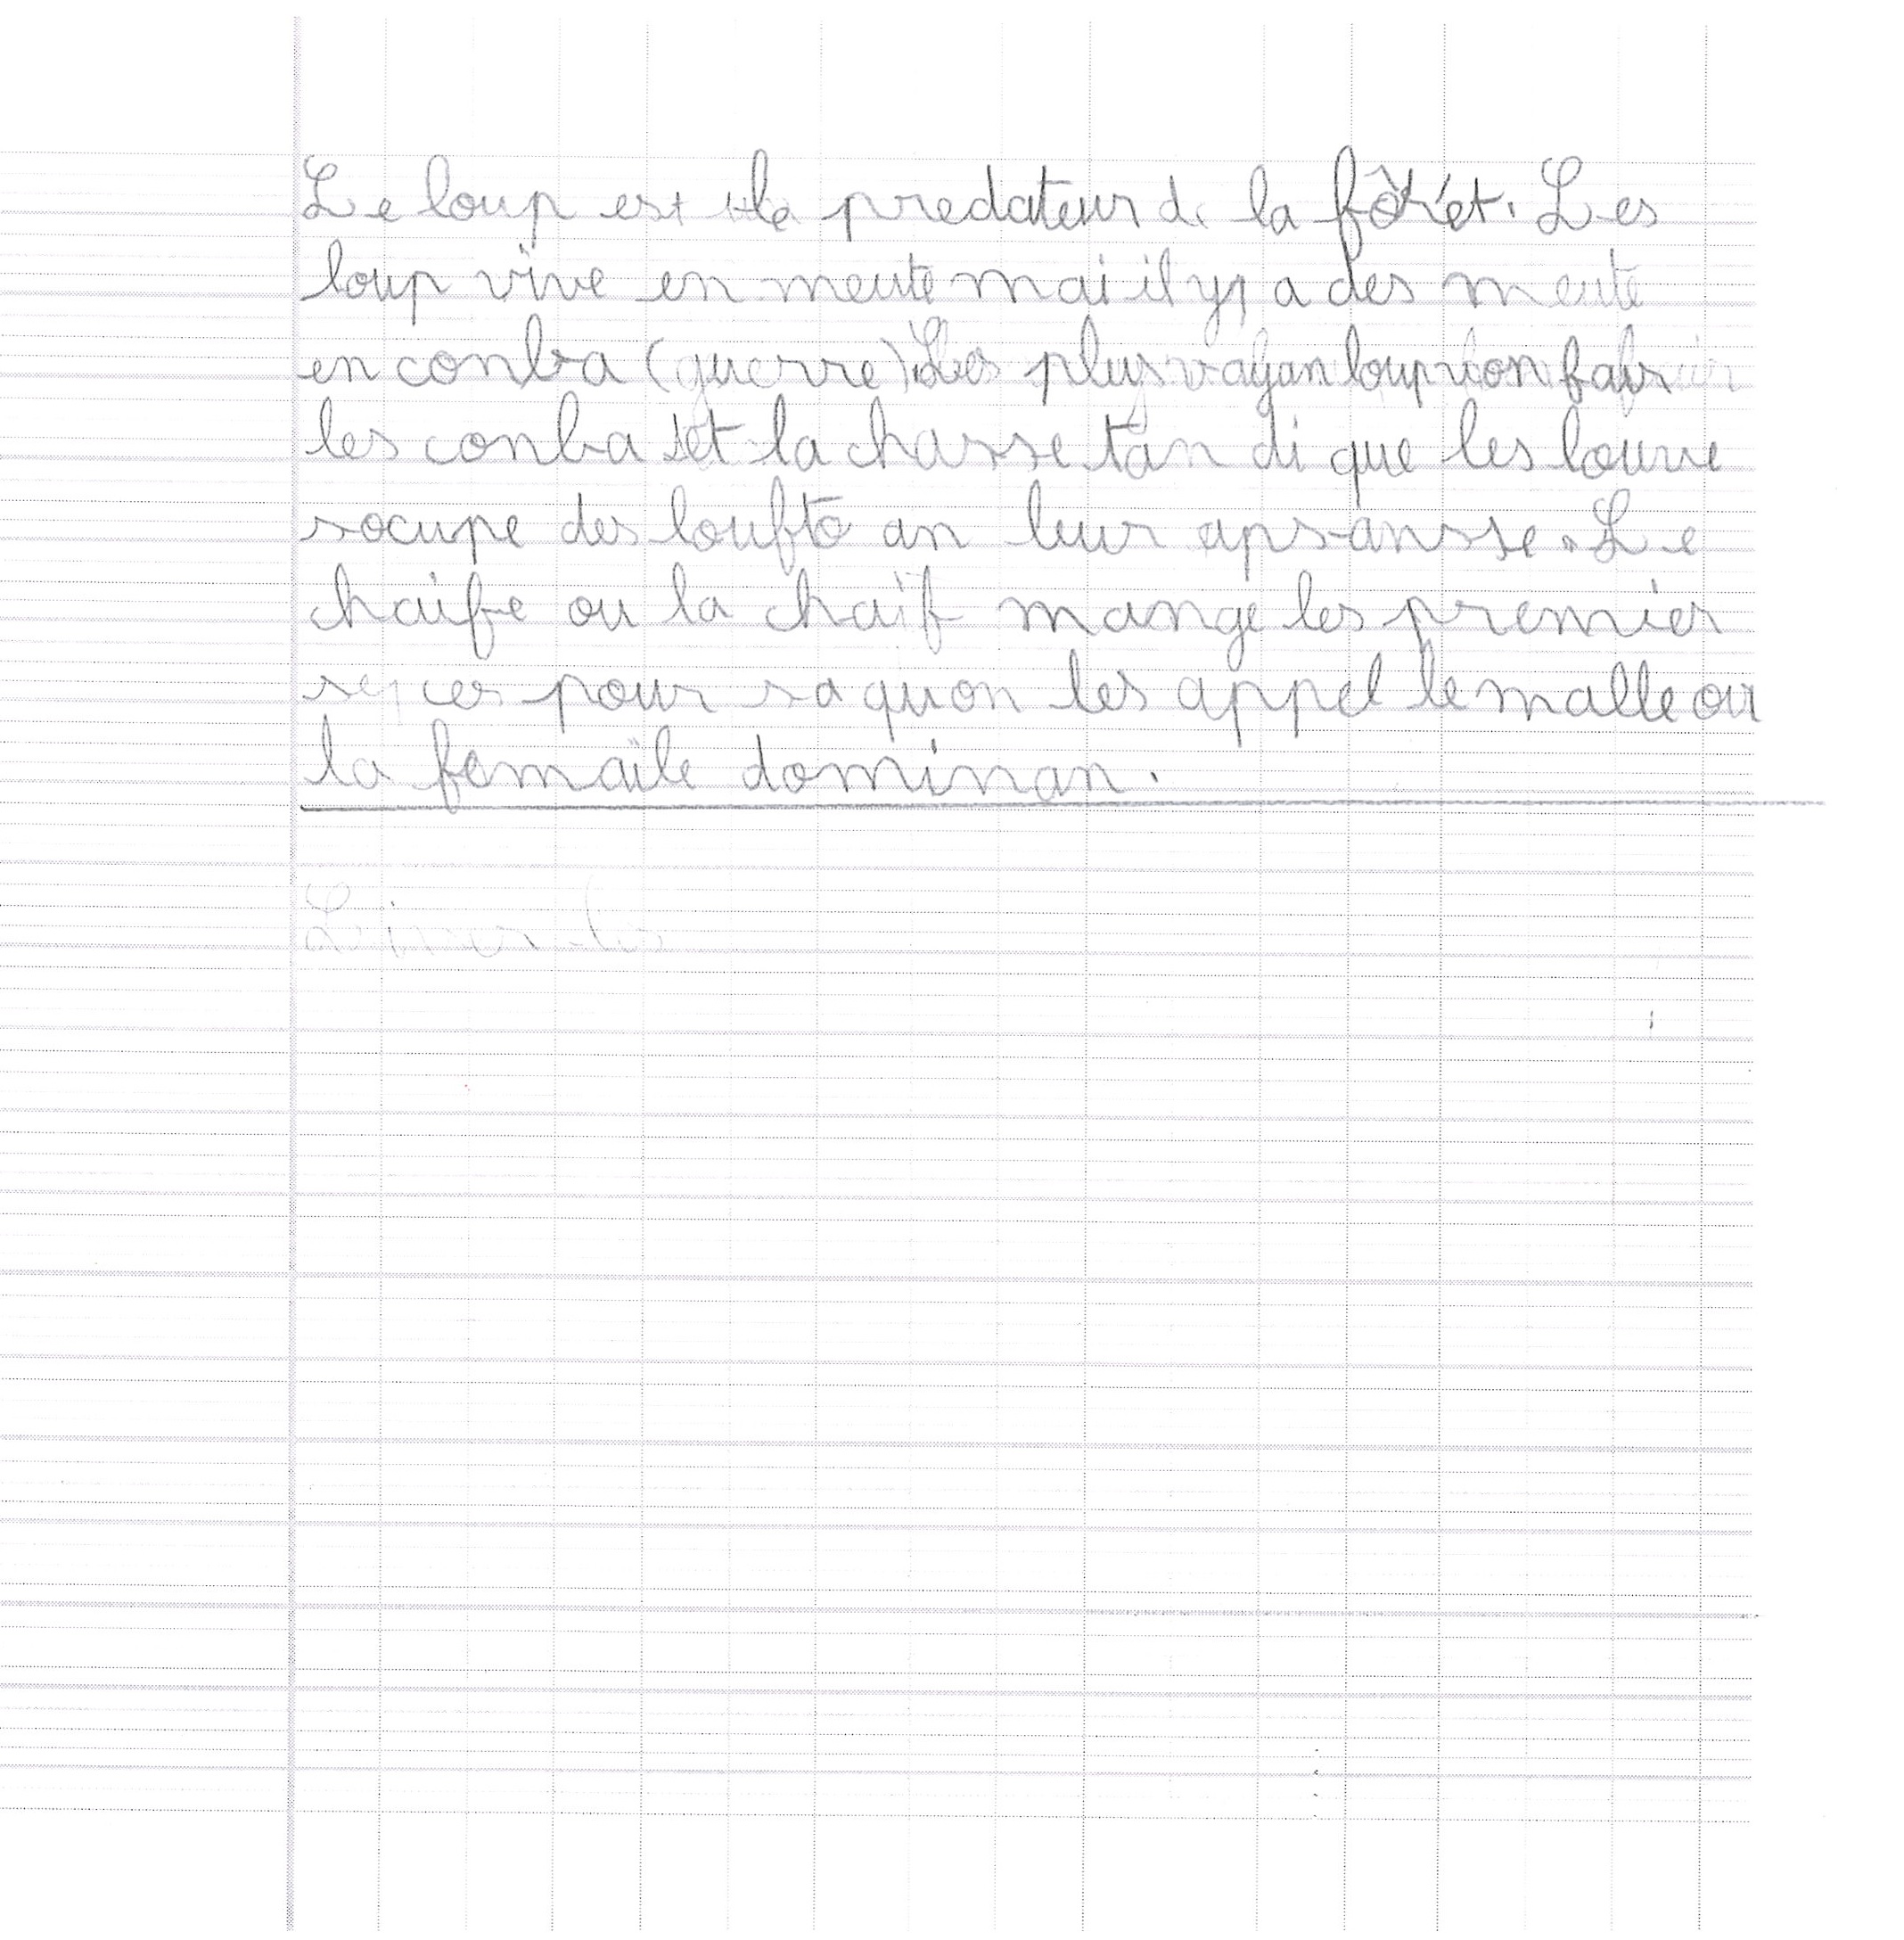 Le loup est le predateur de la fôrét. Les
loup vive en meute mai il y a des meute
en conba (guerre). Les plus vayan loup von fair
les conba et la chasse tan di que les louve
socupe des loufto an leur apsansse. Le
chaife ou la chaif mange les premier
ses pour sa quon les appel le malle ou
la femaile dominan.